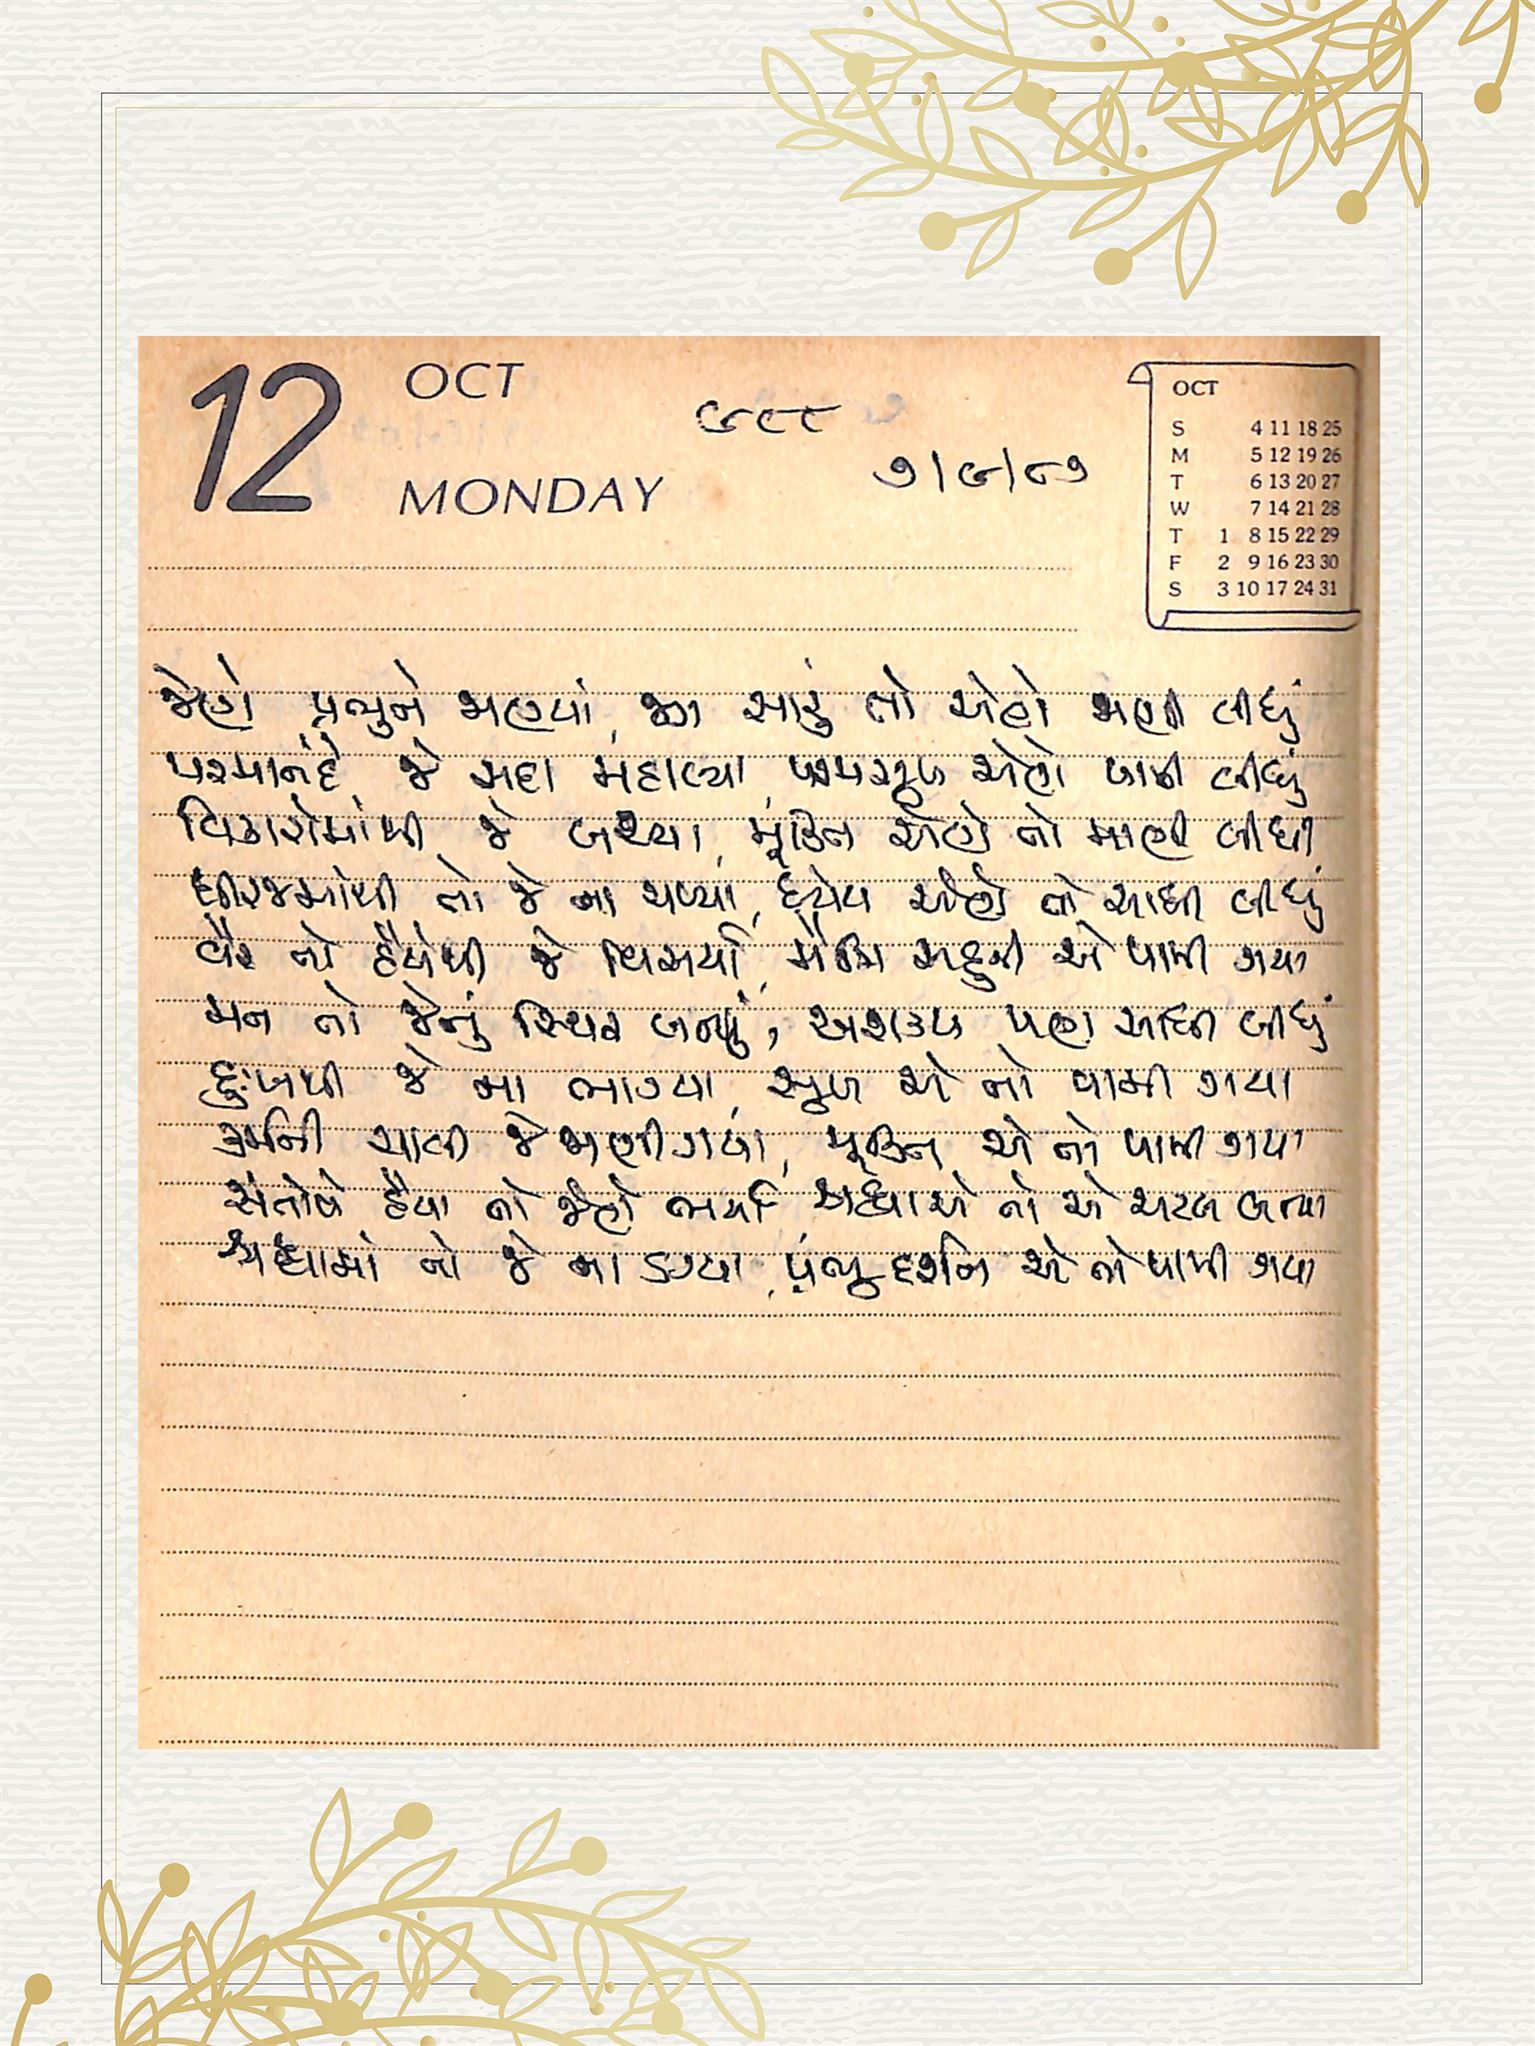 12 OCT
MONDAY
૬૯૮
૭/૬/૮૭
OCT
S 4 11 18 25
M 5 12 19 26
T 6 13 20 27
W 7 14 21 28
T 1 8 15 22 29
F 2 9 16 23 30
S 3 10 17 24 31
જેણે પ્રભુને ભણ્યાં, જગ સારું તો એણે ભણી લીધું
પરમાનંદે જે સદા મહાલ્યા, પરમસુખ એણે પામી લીધું
વિકારોમાંથી જે બચ્યા, મુક્તિ એણે તો માણી લીધી
ધીરજમાંથી તો જે ના ચળ્યા, ધ્યેય એણે તો સાધી લીધું
વૈર તો હૈયેથી જે વિસર્યા, મૈત્રિ સહુની એ પામી ગયા
મન તો જેનું સ્થિર બન્યું, અશક્ય પણ સાધી લીધું
દુઃખથી જે ના ભાગ્યા, સુખ એ તો પામી ગયા
કર્મની ચાવી જે ભણી ગયા, મુક્તિ એ તો પામી ગયા
સંતોષે હૈયા તો જેણે ભર્યા એ તો એ સરલ બન્યા
શ્રધ્ધામાં તો જે ના ડગ્યા, પ્રભુ દર્શન એ તો પામી ગયા